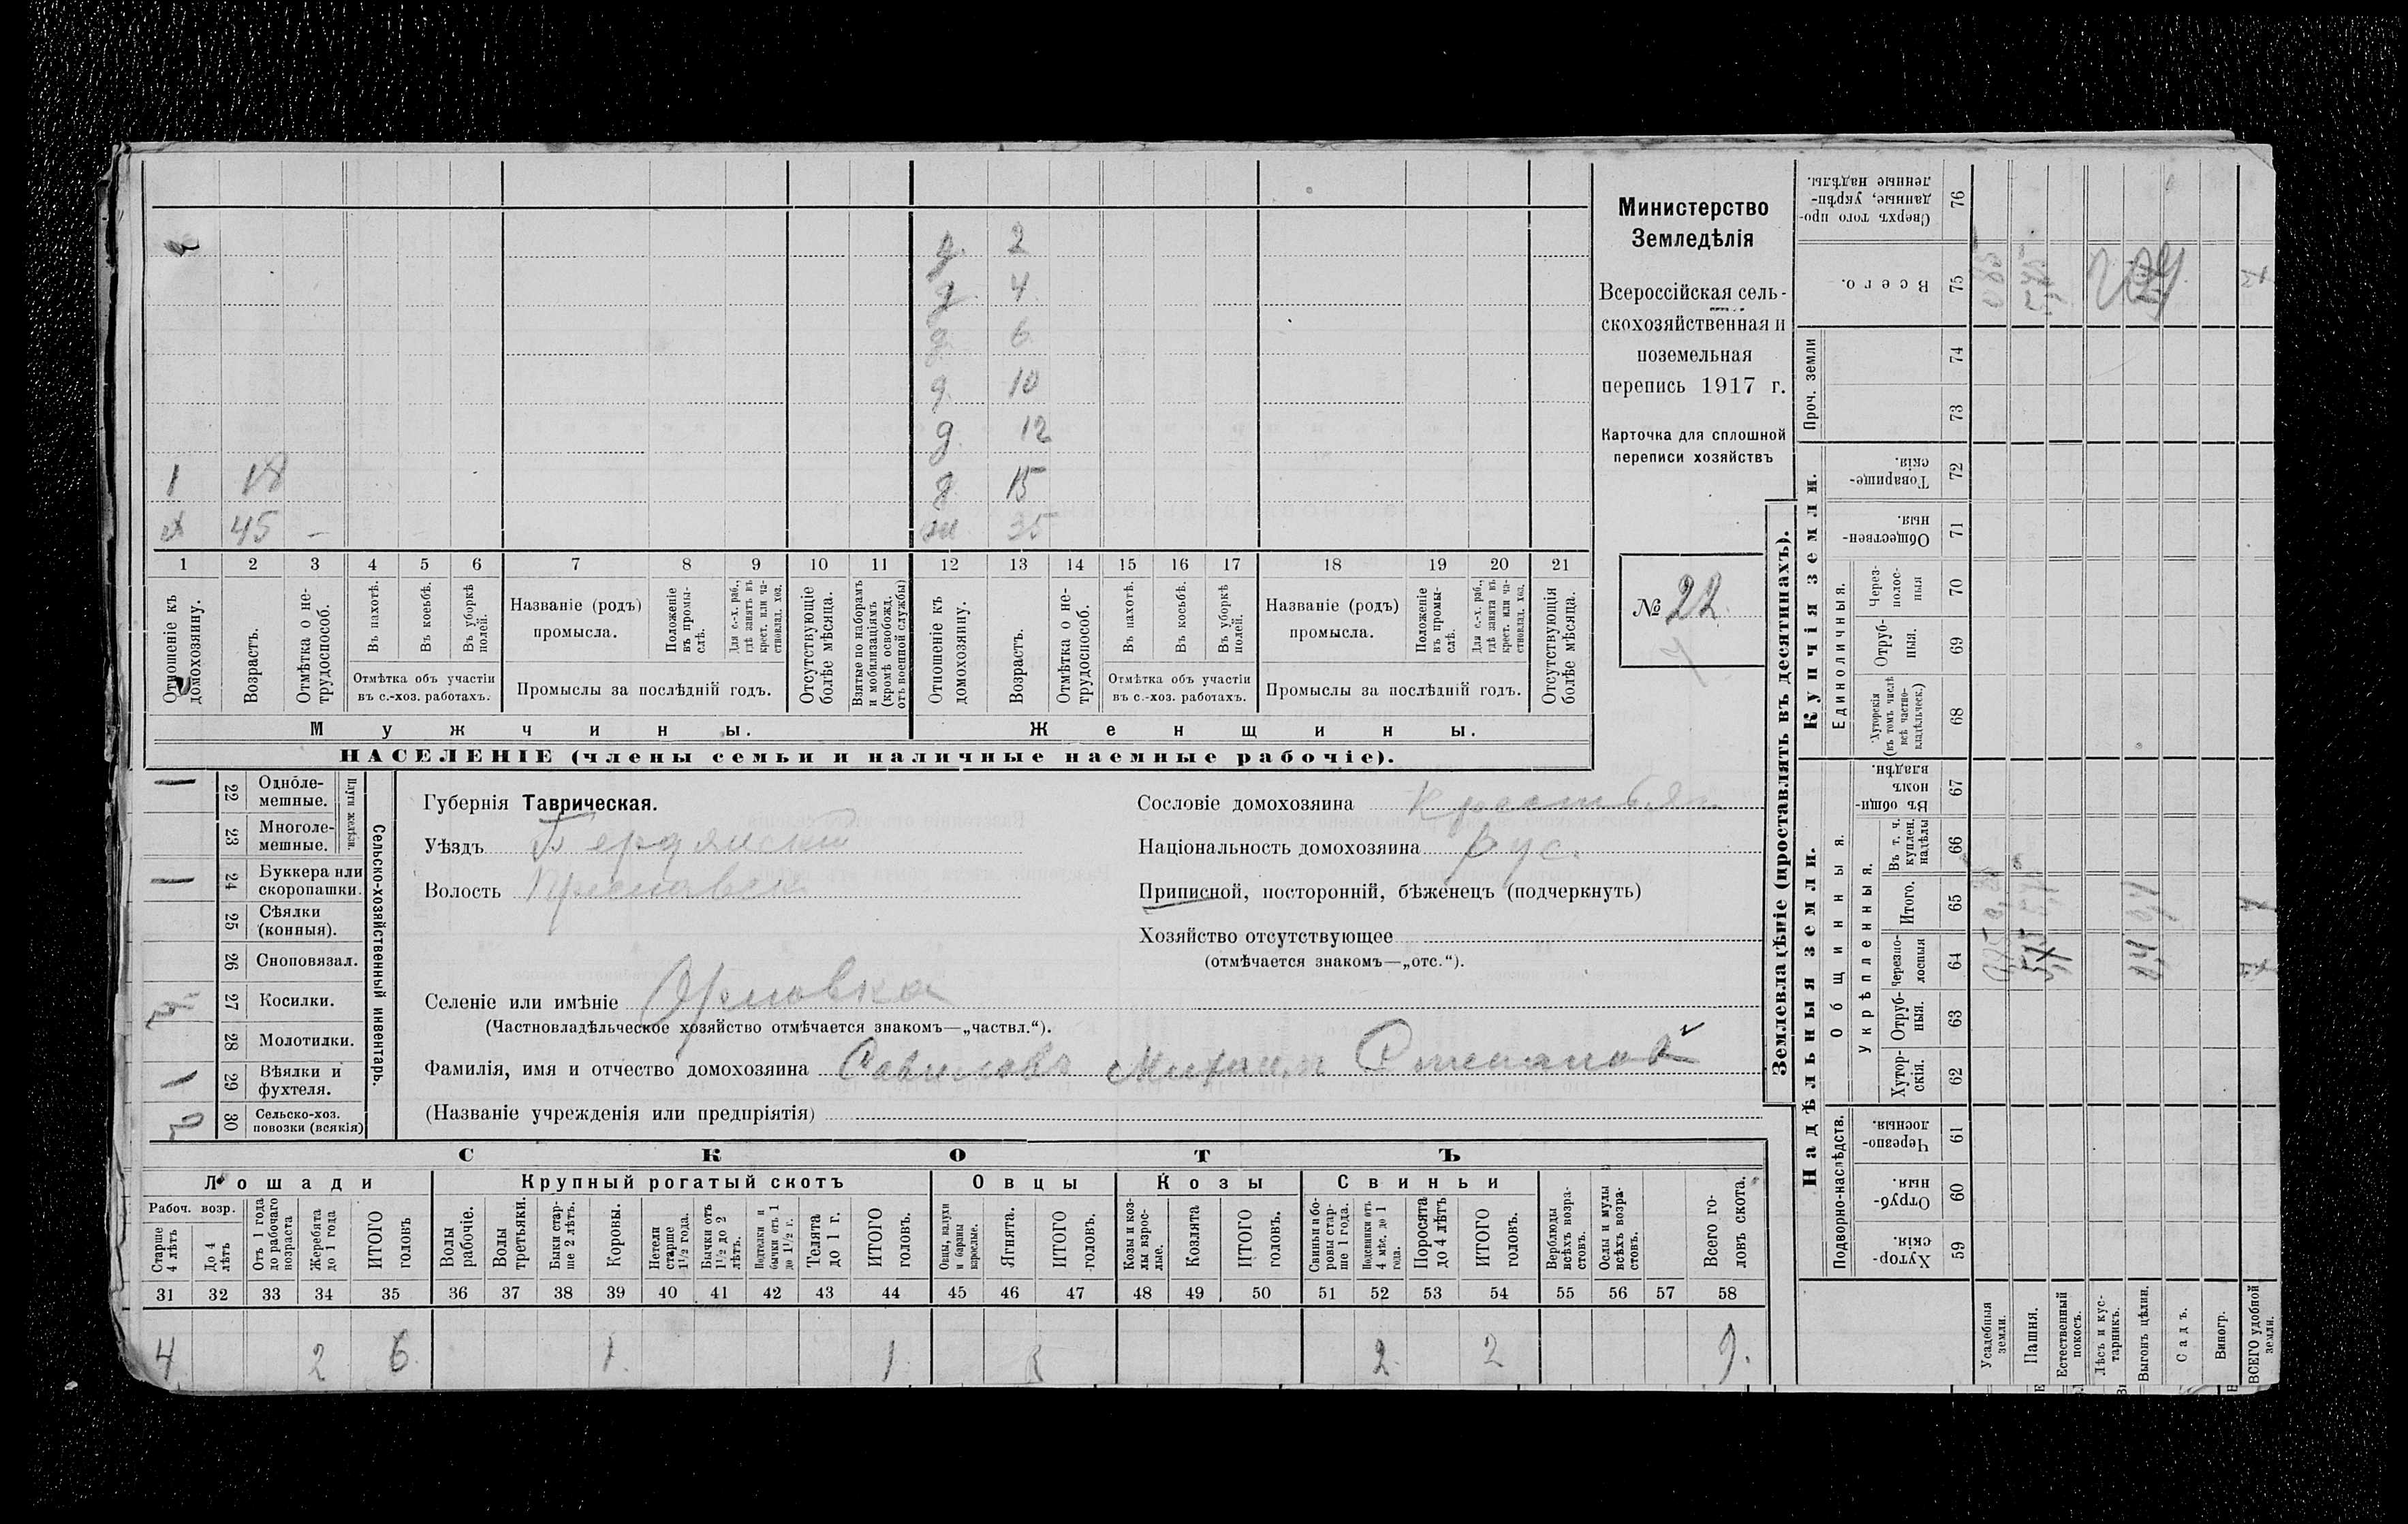 2
4
6
10
12
1 18
д 15
45 –
35
1 2 3 4 5 6 7 8 9 10 11 12 13 14 15 16 17 18 19 20 21
Отношеніе къ домохозяину.
Возрастъ.
Отмѣтка о не-
трудоспособ.
Въ пахотѣ.
Въ косьбѣ.
Въ уборкѣ
полей.
Отмѣтка объ участіи
въ с.-хоз. работахъ.
Названіе (родъ)
промысла.
Положеніе
въ промы-
слѣ.
Для с.-х. раб.,
гдѣ занятъ въ
крест. или ча-
стновлад. хоз.
Промыслы за послѣдній годъ.
Отсутствующіе
болѣе мѣсяца.
Взятые по наборамъ
и мобилизаціямъ
(кромѣ освобожд.
отъ военной службы)
Отношеніе къ
домохозяину.
Возрастъ.
Отмѣтка о не-
трудоспособ.
Въ пахотѣ.
Въ косьбѣ.
Въ уборкѣ
полей.
Отмѣтка объ участіи
въ с.-хоз. работахъ.
Названіе (родъ)
промысла.
Положеніе
въ промы-
слѣ.
Для с.-х. раб.,
гдѣ занята въ
крест. или ча-
стновлад. хоз.
Промыслы за послѣдній годъ.
Отсутствующія
болѣе мѣсяца.
Мужчины. Женщины.
НАСЕЛЕНІЕ (члены семьи и наличные наемные рабочіе).
Министерство
Земледѣлія
Всероссійская сель-
скохозяйственная и
поземельная
перепись 1917 г.
Карточка для сплошной
переписи хозяйствъ
№ 22
22 Одноле-
мешные.
23 Многоле-
мешные.
Плуги желѣзн.
24 Буккера или
скоропашки.
25 Сѣялки
(конныя).
26 Сноповязал.
27 Косилки.
28 Молотилки.
29 Вѣялки и
фухтеля.
30 Сельско-хоз.
повозки (всякія)
Сельско-хозяйственный инвентарь.
Губернія Таврическая.
Уѣздъ Бердянскій
Волость
Селеніе или имѣніе Орловка
(Частновладѣльческое хозяйство отмѣчается знакомъ—„частвл.“).
Фамилія, имя и отчество домохозяина Савиловъ Степанов
(Названіе учрежденія или предпріятія)
Сословіе домохозяина крестьян
Національность домохозяина Рус.
Приписной, посторонній, бѣженецъ (подчеркнуть)
Хозяйство отсутствующее
(отмѣчается знакомъ—„отс.“).
СКОТЪ
Лошади Крупный рогатый скотъ Овцы Козы Свиньи
Рабоч. возр.
Старше
4 лѣтъ
До 4
лѣтъ
Отъ 1 года
до рабочаго
возраста
Жеребята
до 1 года
ИТОГО
головъ
Волы
рабочіе.
Волы
третьяки.
Быки стар-
ше 2 лѣтъ.
Коровы.
Нетели
старше
1½ года.
Бычки отъ
1½ до 2
лѣтъ.
Подтелки и
бычки отъ 1
до 1½ г.
Телята
до 1 г.
ИТОГО
головъ.
Овцы, валухи
и бараны
взрослые.
Ягнята.
ИТОГО
головъ.
Козы и коз-
лы взрос-
лые.
Козлята
ИТОГО
головъ.
Свиньи и бо-
ровы стар-
ше 1 года.
Подсвинки отъ
4 мѣс. до 1
года.
Поросята
до 4 лѣтъ
ИТОГО
головъ.
Верблюды
всѣхъ возра-
стовъ.
Ослы и мулы
всѣхъ возра-
стовъ.
Всего го-
ловъ скота.
31 32 33 34 35 36 37 38 39 40 41 42 43 44 45 46 47 48 49 50 51 52 53 54 55 56 57 58
4 2 6 1 1 2 2 9.
Землевладѣніе (проставлять въ десятинахъ).
Сверхъ того про-
данные, укрѣп-
ленные надѣлы. 76
Всего. 75
Проч. земли 74 73
Купчія земли.
Товарище-
скія. 72
Обществен-
ныя. 71
Единоличныя.
Через-
полос-
ныя 70
Отруб-
ныя. 69
Хуторскія
(въ томъ числѣ
всѣ частно-
владѣльческ.) 68
Надѣльныя земли.
Общинныя.
Въ общи-
номъ
владѣн. 67
Укрѣпленныя.
Въ т. ч.
куплен.
надѣлы 66
Итого. 65
Черезпо-
лосныя 64
Отруб-
ныя. 63
Хутор-
скія. 62
Подворно-наслѣдств.
Черезпо-
лосныя. 61
Отруб-
ныя. 60
Хутор-
скія. 59
Усадебныя
земли.
Пашня.
Естественный
покосъ.
Лѣсъ и кус-
тарникъ.
Выгонъ цѣлин.
Садъ.
Виногр.
ВСЕГО удобной
земли.